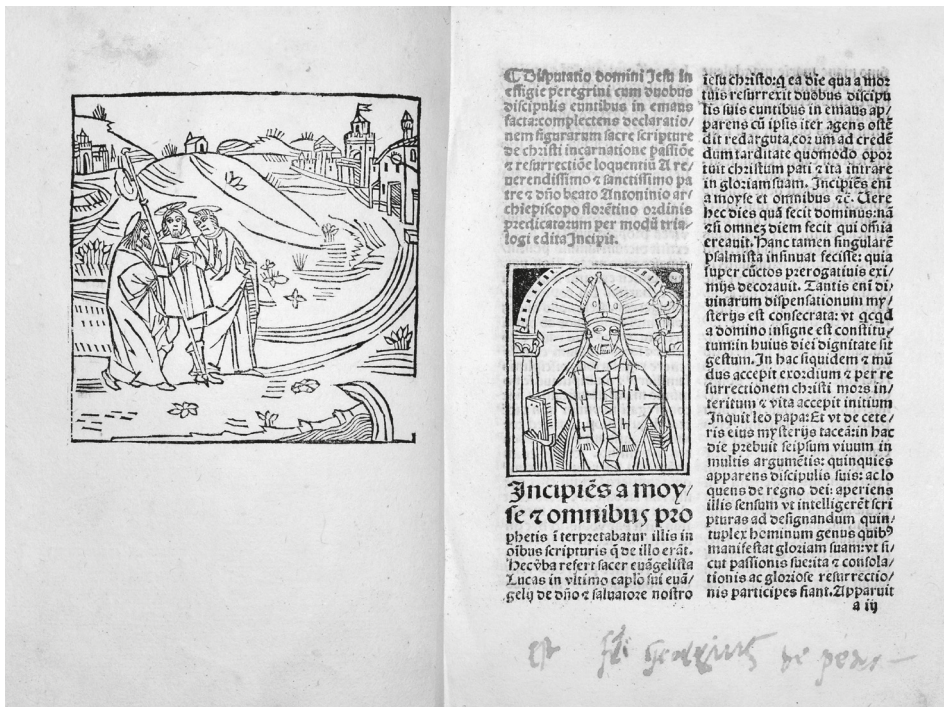 ¶ Disputatio domini Jesu in
effigie peregrini cum duobus
discipulis euntibus in emaus
facta: complectens declaratio/
nem figurarum sacre scripture
de christi incarnatione passiõe
⁊ resurrectiõe loquentiũ A re/
uerendissimo ⁊ sanctissimo pa
tre ⁊ dño beato Antoninio ar/
chiepiscopo florẽtino ordinis
predicatorum per modũ tria/
logi edita Incipit.
Incipiẽs a moy/
se ⁊ omnibus pro
phetis ĩ terpretabatur illis in
oĩbus scripturis q̃ de illo erãt.
Hec v̾ba refert sacer euãgelista
Lucas in vltimo caplo sui euã/
gelij de dño ⁊ saluatore nostro
iesu christo: q ea die qua a mor
tuis resurrexit duobus discipu
lis suis euntibus in emaus ap/
parens cũ ipsis iter agens ostẽ
dit redarguta, eorum ad credẽ
dum tarditate quomodo opor
tuit christum pati ⁊ ita intrare
in gloriam suam. Incipiẽs eni
a moyse et omnibus ⁊c. Uere
hec dies quã fecit dominus: nã
⁊ si omnez diem fecit qui oĩnia
creauit. Hanc tamen singularẽ
psalmista insinuat fecisse: quia
super cũctos prerogatiuis exi/
mijs decorauit. Tantis eni di/
uinarum dispensationum my/
sterijs est consecrata: vt qcqd
a domino insigne est constitu/
tum: in huius diei dignitate sit
gestum. In hac siquidem ⁊ mũ
dus accepit exordium ⁊ per re
surrectionem christi mors in/
teritum ⁊ vita accepit initium
Inquit leo papa: Et vt de cete/
ris eius mysterijs taceã: in hac
die prebuit seipsum viuum in
multis argumẽtis: quinquies
apparens discipulis suis: ac lo
quens de regno dei: aperiens
illis sensum vt intelligerẽt scri
pturas ad designandum quin/
tuplex hominum genus quibꝰ
manifestat gloriam suam: vt si/
cut passionis sue: ita ⁊ consola/
tionis ac gloriose resurrectio/
nis participes fiant. Apparuit
a iij
est de